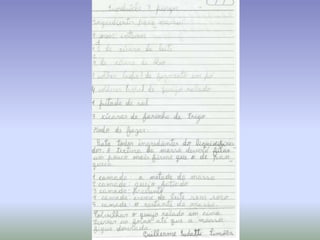 Ingredientes para massa
3 ovos inteiros
1 e ½ de xícara de leite
½ de xícara de óleo
1 colher (sopa) de fermento em pó
4 colheres (sopa) de queijo ralado
1 pitada de sal
2 xícaras de farinha de trigo
Modo de fazer:
Bata todos ingredientes do liquidifica
dor. A textura da massa deverá ficar
um pouco mais firme que a de pan
queca.
1 camada: a metade da massa
2 camada: queijo fatiado
3 camada:
4 camada: creme de leite sem soro
5 camada: o restante da massa.
Polvilhar o queijo ralado em cima
Levar ao forno até que a massa
fique dourada.
Guilherme